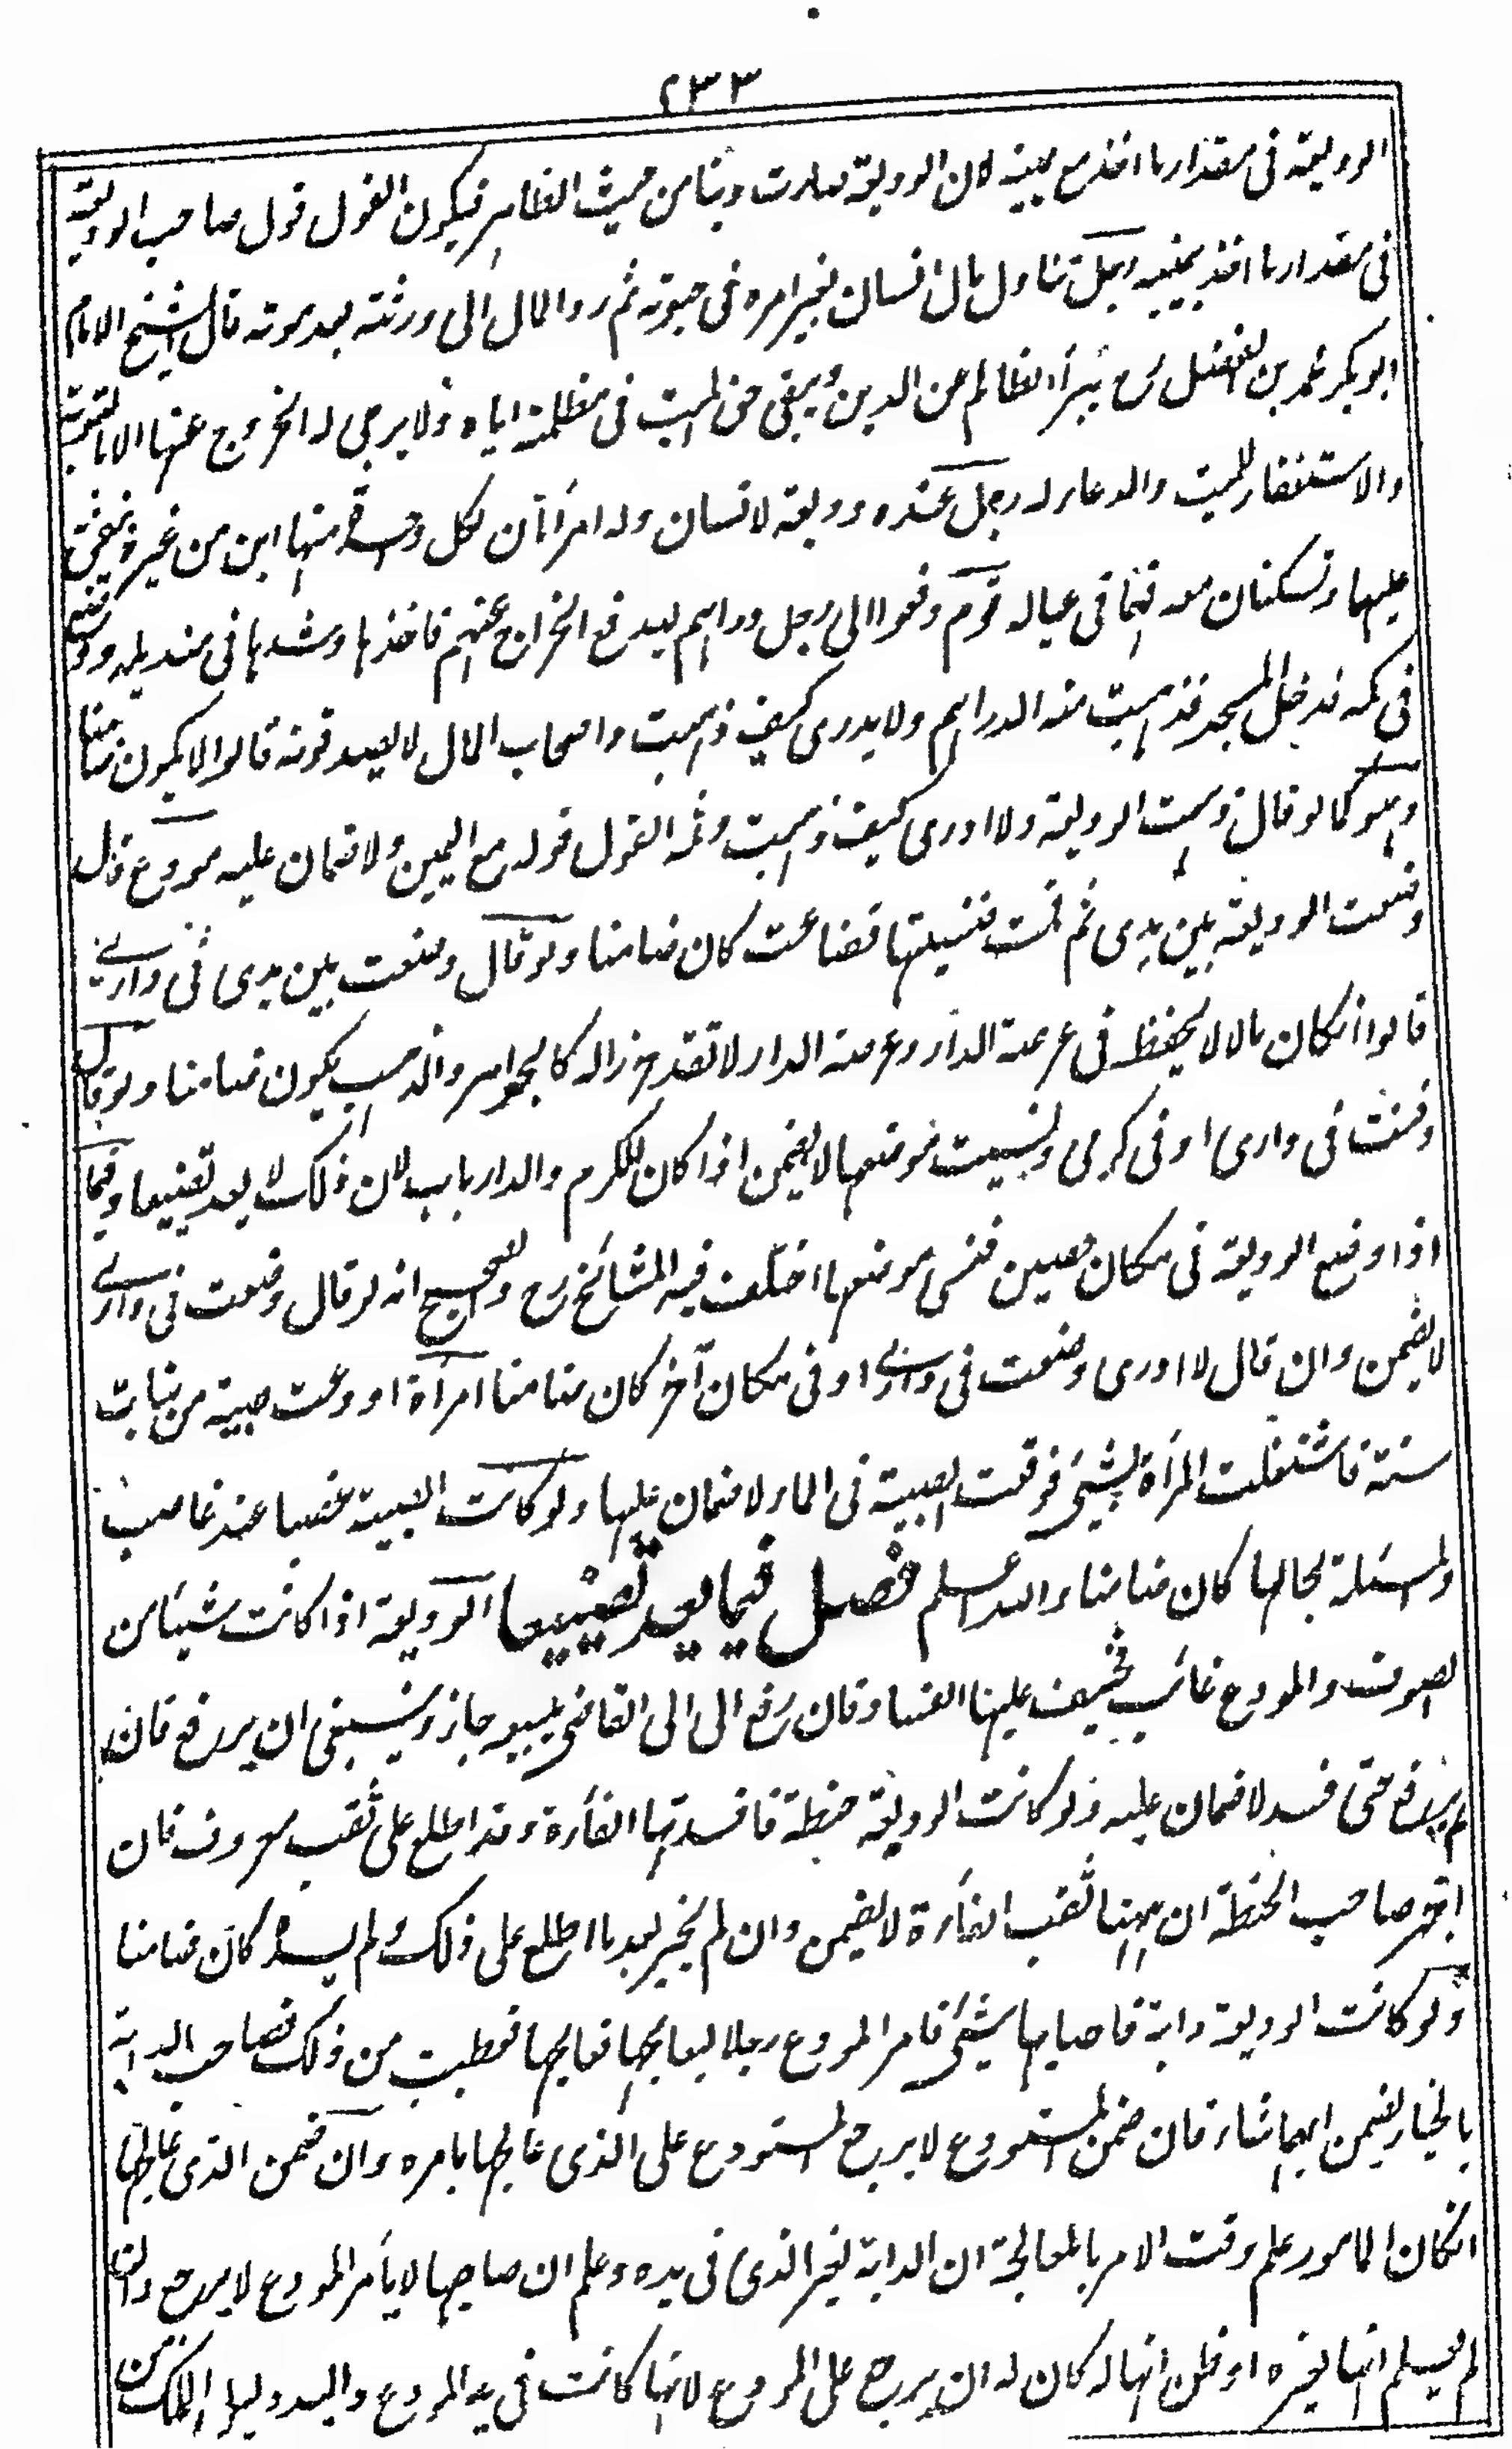 ٢٣٣
الوديعة فى مقدار ما اخذ مع يمينه لان الوديعة صارت دينا من حيث الظاهر فيكون القول قول صاحب الوديعة
فى مقدار ما اخذ بيمينه رجل تناول مال انسان بغير امره فى حيوته ثم رد المال الى ورثته بعد موته قال الشيخ الامام
ابو بكر محمد بن الفضل رح يبرأ الظالم عن الدين ويبقى حق الميت فى مظلمته اياه ولا يرجى له الخروج عنها الا بالتوبة
والاستغفار للميت والدعاء له رجل عنده وديعة لانسان وله امرأتان لكل وحدة منهما ابن من غيره ينفق
عليهما وتسكنان معه فهما فى عياله قوم دفعوا الى رجل دراهم ليدفع الخراج عنهم فاخذها وشدها فى منديله ووضع
فى كمه فدخل المسجد فذهبت منه الدراهم ولا يدرى كيف ذهبت واصحاب المال لا يصدقونه قالوا لا يكون ضامنا
وهو كما لو قال ذهبت الوديعة ولا ادرى كيف ذهبت وثمه القول قوله مع اليمين ولا ضمان عليه مودع قال
وضعت الوديعة بين يدى ثم قمت فنسيتها فضاعت كان ضامنا ولو قال وضعت بين يدى فى دارى
قالوا انكان مالا لا يحفظ فى عرصة الدار وعرصة الدار لا تعد حرزا له كالجواهر والذهب يكون ضامنا ولو قال
دفنت فى دارى او فى كرمى ونسيت موضعها لا يضمن اذا كان للكرم والدار باب لان ذلك لا يعد تضييعا وفيما
اذا وضع الوديعة فى مكان معين فنسى موضعها اختلف فيه المشائخ رح والصحيح انه لو قال وضعت فى دارى
لا يضمن وان قال لا ادرى وضعت فى دارى او فى مكان آخر كان ضامنا امرأة اودعت صبية من بنات
سنة فاشتغلت المرأة بشئ فوقعت الصبية فى الماء لا ضمان عليها ولو كانت الصبية غصبا عند غاصب
والمسئلة بحالها كان ضامنا والله اعلم فصل فيما يعد تضييعا الوديعة اذا كانت شيئا من
الصوف والمودع غائب فخيف عليها الفساد فان رفع الى القاضى ليبيع جاز وينبغى ان يرفع فان
لم يرفع حتى فسد لا ضمان عليه ولو كانت الوديعة حنطة فافسدتها الفأرة وقد اطلع على ثقب معروف فان
اخبر صاحب الحنطة ان ههنا ثقب الفأرة لا يضمن وان لم يخبر بعد ما اطلع على ذلك ولم يسده كان ضامنا
ولو كانت الوديعة دابة فاصابها شئ فامر المودع رجلا ليعالجها فعالجها فعطبت من ذلك فصاحب الدابة
بالخيار يضمن ايهما شاء فان ضمن المستودع لا يرجع المستودع على الذى عالجها بامره وان ضمن الذى عالجها
انكان المامور علم وقت الامر بالمعالجة ان الدابة لغير الذى فى يده وعلم ان صاحبها لا يأمر المودع لا يرجع وان
لم يعلم انها لغيره او ظن انها له كان له ان يرجع على المودع لانها كانت فى يد المودع واليد دليل الملك من